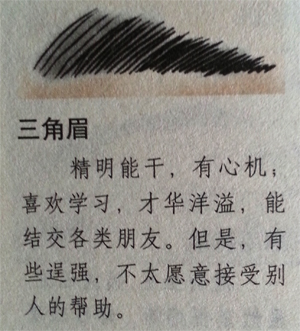 三角眉
精明能干，有心机；
喜欢学习，才华洋溢，能
结交各类朋友。但是，有
些逞强，不太愿意接受别
人的帮助。